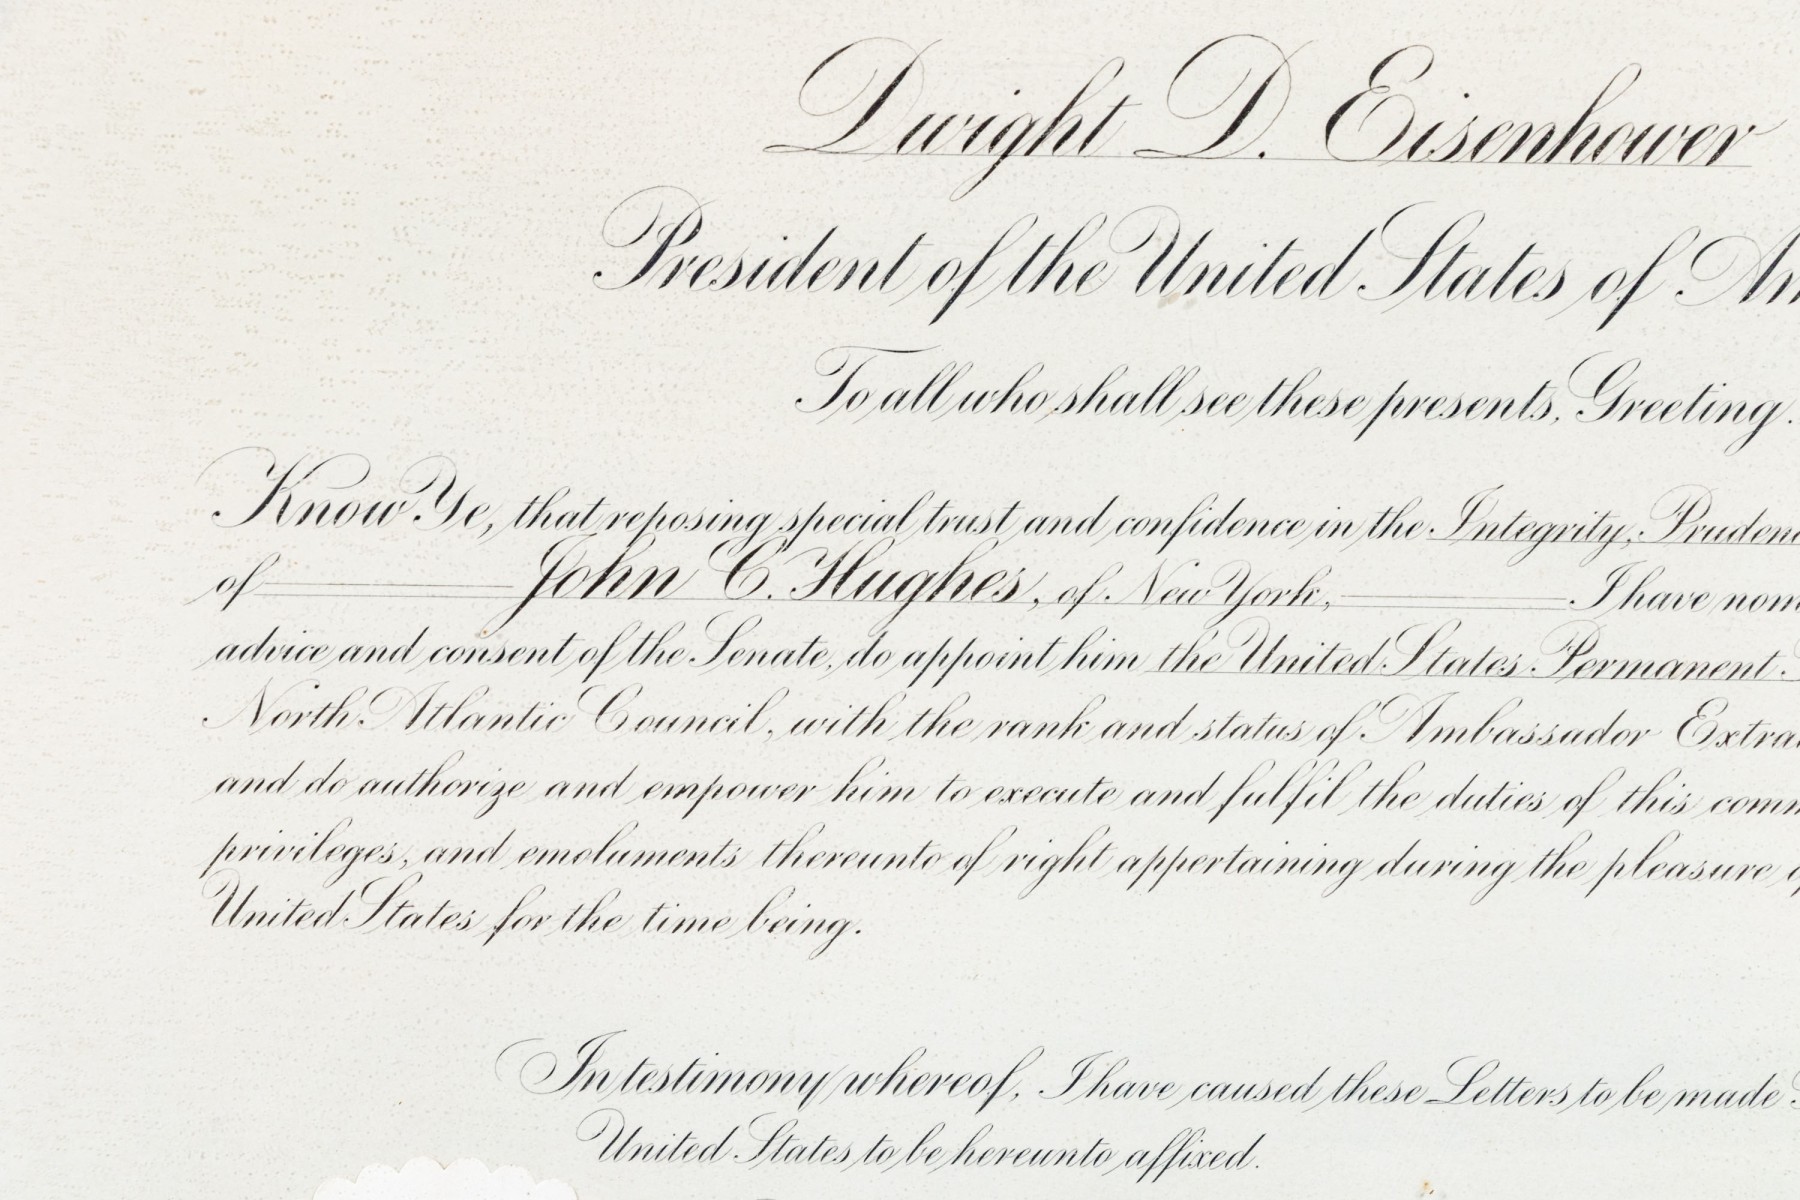 Dwight D. Eisenhower
President of the United States of Am
To all who shall see these presents, Greeting.
Know Ye, that reposing special trust and confidence in the Integrity, Pruden
of John C. Hughes, of New York, I have nom
advice and consent of the Senate, do appoint him the United States Permanent
North Atlantic Council, with the rank and status of Ambassador Extra
and do authorize and empower him to execute and fulfil the duties of this comm
privileges, and emoluments thereunto of right appertaining during the pleasure
United States for the time being.
In testimony whereof, I have caused these Letters to be made
United States to be hereunto affixed.